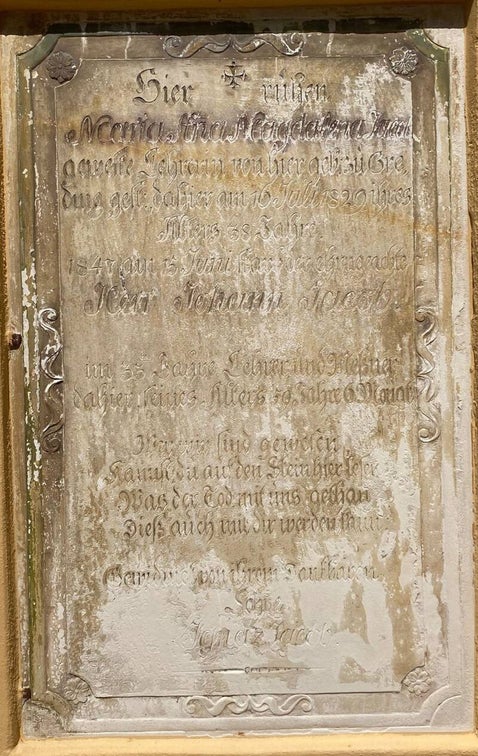 Hier ruhen
Maria Anna Magdalena Jacob
geweste Lehrerin von hier geb. zu Gre
ding gest. dahier am 16 Juli 1829 ihres
Alters 38 Jahre.
1847 am 13 Juni starb der ehrngeachte
Herr Johann Jacob
im 33 Jahre Lehrer und Meßner
dahier, seines Alters 59 Jahre 6 Monat
Wer wir sind gewesen
Kannst du auf den Stein hier lesen
Was der Tod auf uns gethan
Dieß auch mit dir werden kann
Gewidmet von ihrem Dankbaren
Sohne
Ignatz Jacob